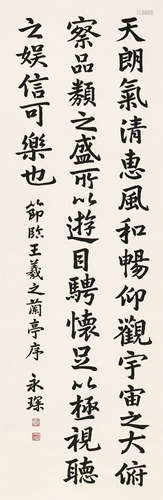 天朗氣清惠風和暢仰觀宇宙之大俯
察品類之盛所以遊目騁懷足以極視聽
之娛信可樂也
節臨王羲之蘭亭序 永琛